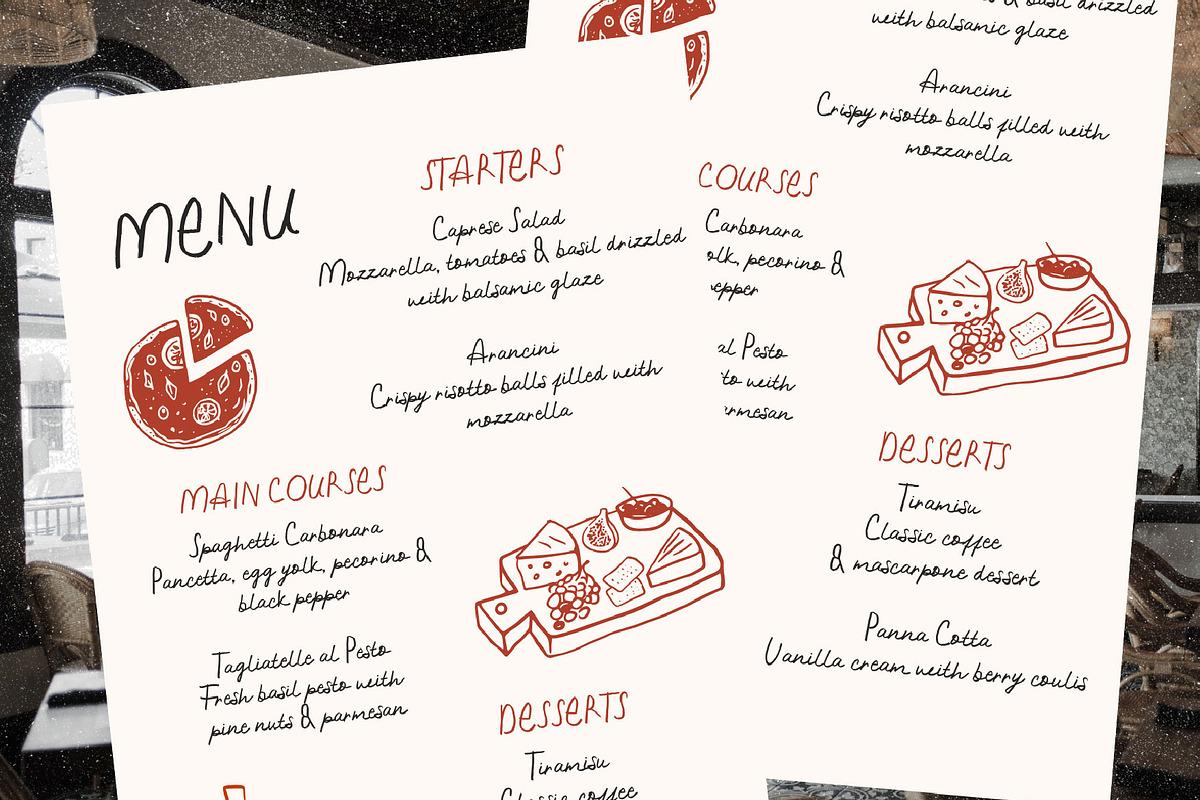 MENU
STARTERS
Caprese Salad
Mozzarella, tomatoes & basil drizzled
with balsamic glaze
Arancini
Crispy risotto balls filled with
mozzarella
MAIN COURSES
Spaghetti Carbonara
Pancetta, egg yolk, pecorino &
black pepper
Tagliatelle al Pesto
Fresh basil pesto with
pine nuts & parmesan
DESSERTS
Tiramisu
Classic coffee
& basil drizzled
with balsamic glaze
Arancini
Crispy risotto balls filled with
mozzarella
COURSES
Carbonara
olk, pecorino &
epper
al Pesto
to with
rmesan
DESSERTS
Tiramisu
Classic coffee
& mascarpone dessert
Panna Cotta
Vanilla cream with berry coulis